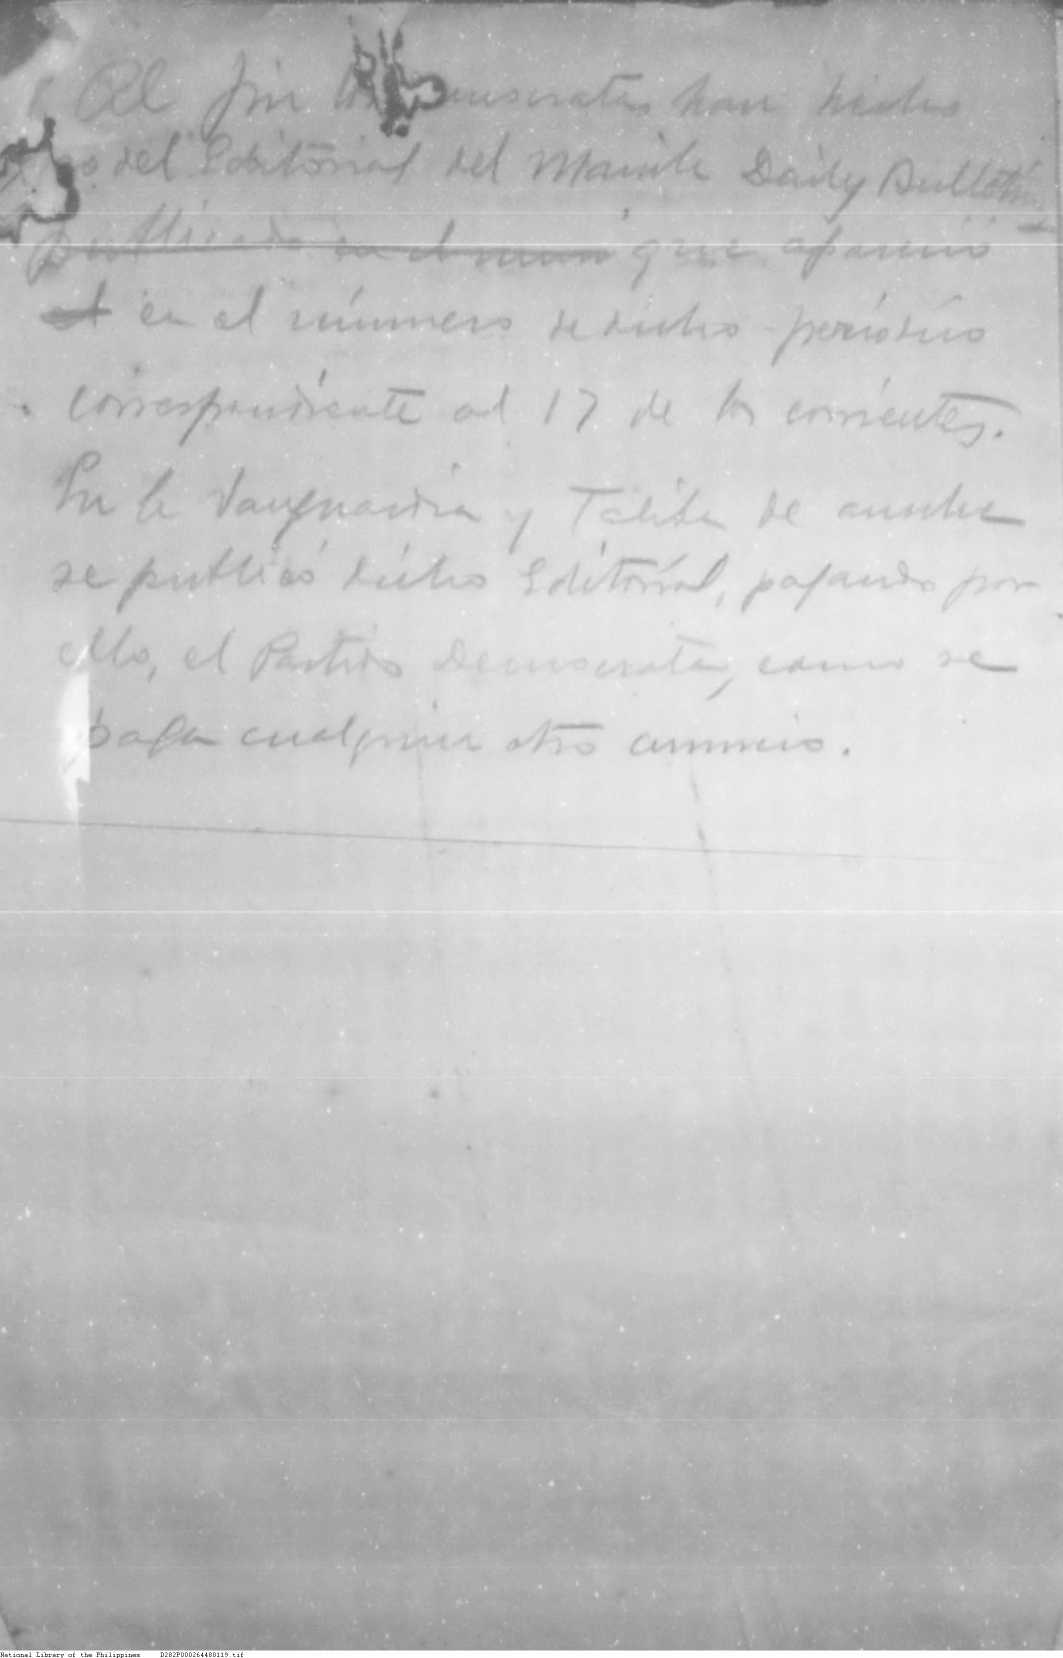 Al fin los Demócratas han hecho
uso del Editorial del Manila Daily Bulletin
publicado en el que apareció
en el número de dicho periódico
correspondiente al 17 de los corrientes.
En la Vanguardia y Taliba de anoche
se publicó dicho Editorial, pagando por
ello, el Partido Demócrata, como se
paga cualquier otro anuncio.
National Library of the Philippines D282P000264480119.tif